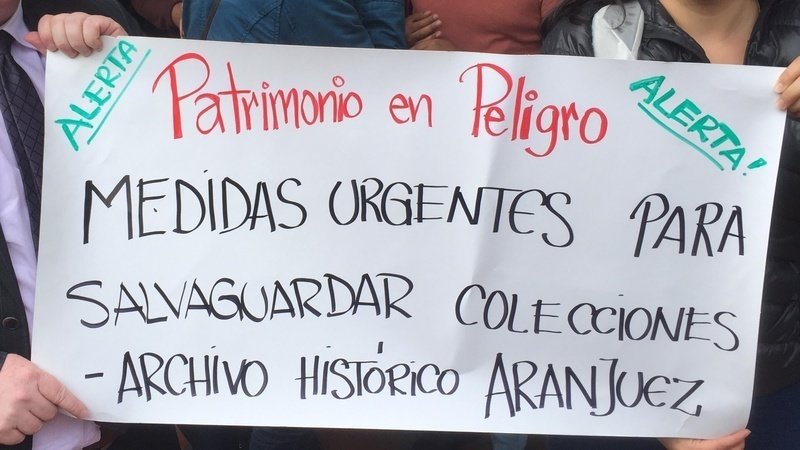 ALERTA
Patrimonio en Peligro
ALERTA!
MEDIDAS URGENTES PARA
SALVAGUARDAR COLECCIONES
- ARCHIVO HISTÓRICO ARANJUEZ